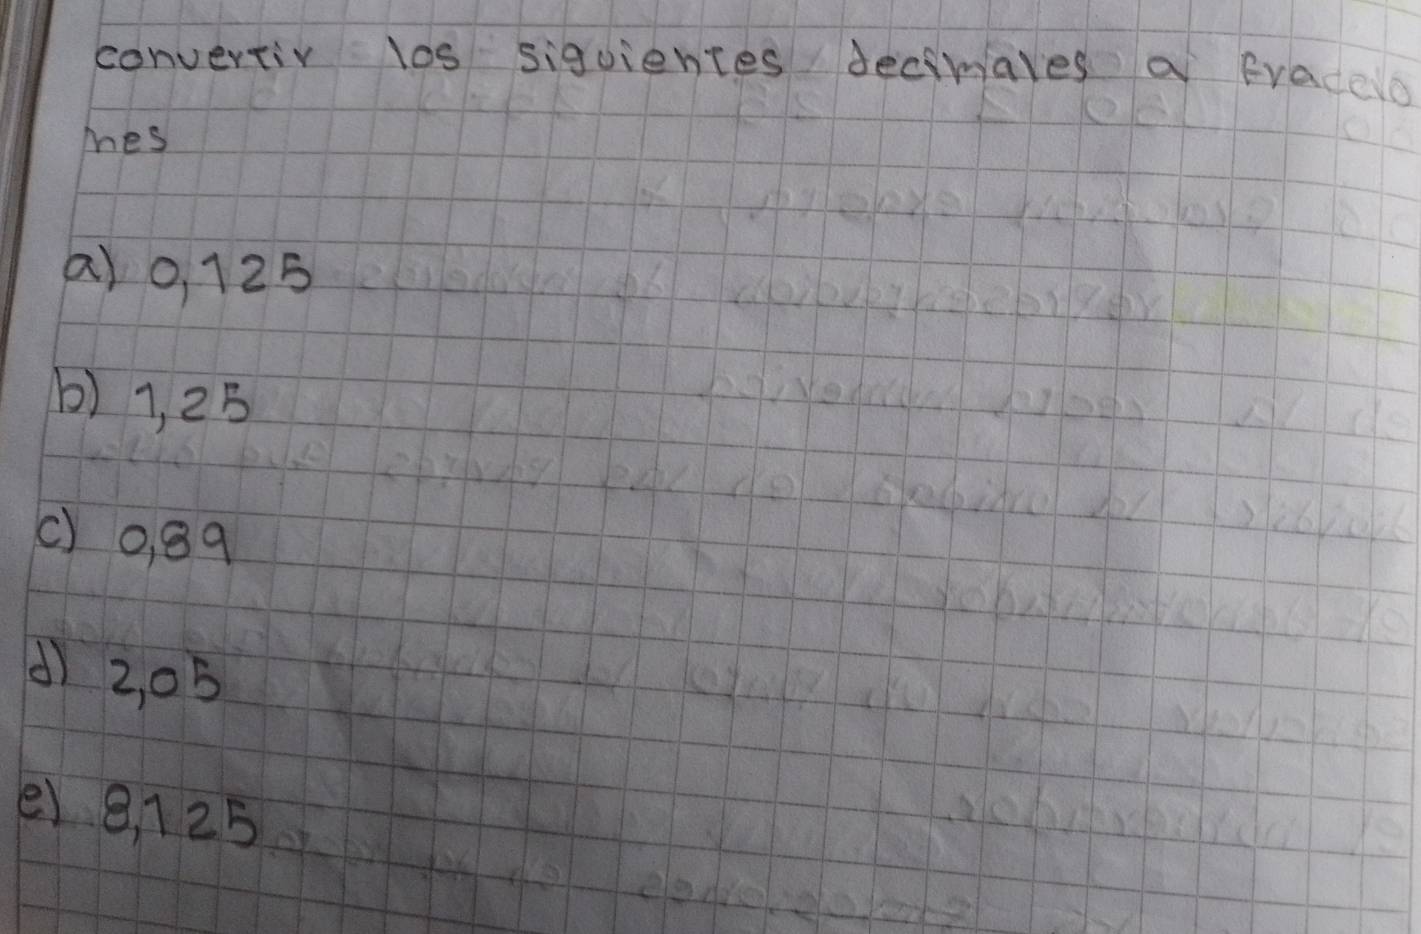 convertir los siguientes decimales a fraccio
nes
a) 0,125
b) 1,25
c) 0,89
d) 2,05
e) 8,125